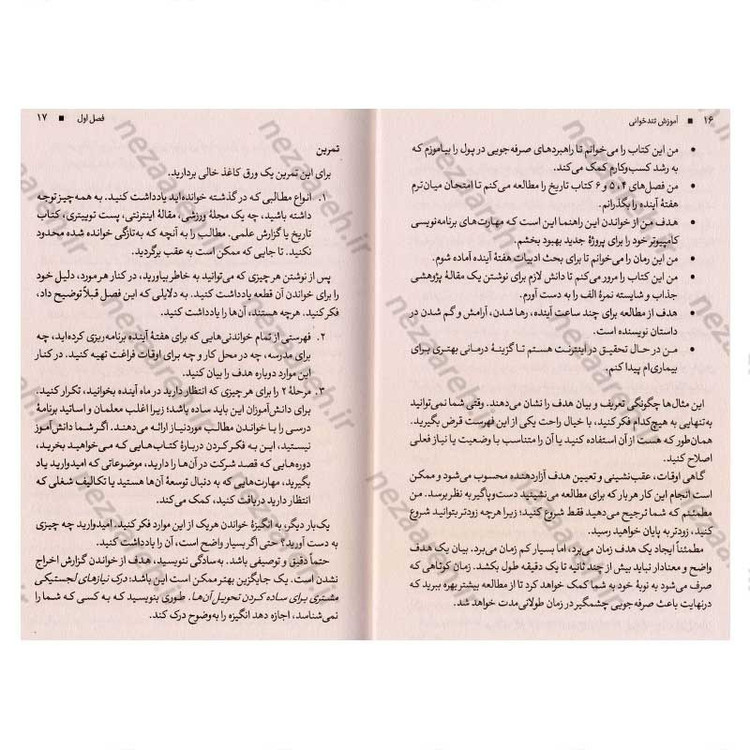 ۱۶ ■ آموزش تندخوانی
• من این کتاب را می‌خوانم تا راهبردهای صرفه‌جویی در پول را بیاموزم که
به رشد کسب‌وکارم کمک می‌کند.
• من فصل‌های ۴، ۵ و ۶ کتاب تاریخ را مطالعه می‌کنم تا امتحان میان‌ترم
هفتهٔ آینده را بگذرانم.
• هدف من از خواندن این راهنما این است که مهارت‌های برنامه‌نویسی
کامپیوتر خود را برای پروژهٔ جدید بهبود بخشم.
• من این رمان را می‌خوانم تا برای بحث ادبیات هفتهٔ آینده آماده شوم.
• من این کتاب را مرور می‌کنم تا دانش لازم برای نوشتن یک مقالهٔ پژوهشی
جذاب و شایسته نمرهٔ الف را به دست آورم.
• هدف از مطالعه برای چند ساعت آینده، رها شدن، آرامش و گم شدن در
داستان نویسنده است.
• من در حال تحقیق در اینترنت هستم تا گزینهٔ درمانی بهتری برای
بیماری‌ام پیدا کنم.
این مثال‌ها چگونگی تعریف و بیان هدف را نشان می‌دهند. وقتی شما نمی‌توانید
به‌تنهایی به هیچ‌کدام فکر کنید، با خیال راحت یکی از این فهرست قرض بگیرید.
همان‌طور که هست از آن استفاده کنید یا آن را متناسب با وضعیت یا نیاز فعلی
اصلاح کنید.
گاهی اوقات، عقب‌نشینی و تعیین هدف آزاردهنده محسوب می‌شود و ممکن
است انجام این کار هر بار که برای مطالعه می‌نشینید دست‌وپاگیر به نظر برسد. من
مطمئنم که شما ترجیح می‌دهید فقط شروع کنید؛ زیرا هرچه زودتر بتوانید شروع
کنید، زودتر به پایان خواهید رسید.
مطمئناً ایجاد یک هدف زمان می‌برد، اما بسیار کم زمان می‌برد. بیان یک هدف
واضح و معنادار نباید بیش از چند ثانیه تا یک دقیقه طول بکشد. زمان کوتاهی که
صرف می‌شود به نوبهٔ خود به شما کمک خواهد کرد تا از مطالعه بیشتر بهره ببرید که
درنهایت باعث صرفه‌جویی چشمگیر در زمان طولانی‌مدت خواهد شد.
فصل اول ■ ۱۷
تمرین
برای این تمرین یک ورق کاغذ خالی بردارید.
۱. انواع مطالبی که در گذشته خوانده‌اید یادداشت کنید. به همه‌چیز توجه
داشته باشید، چه یک مجلهٔ ورزشی، مقالهٔ اینترنتی، پست توییتری، کتاب
تاریخ یا گزارش علمی. مطالب را به آنچه که به‌تازگی خوانده شده محدود
نکنید. تا جایی که ممکن است به عقب برگردید.
پس از نوشتن هر چیزی که می‌توانید به خاطر بیاورید، در کنار هر مورد، دلیل خود
را برای خواندن آن قطعه یادداشت کنید. به دلایلی که این فصل قبلاً توضیح داد،
فکر کنید. هرچه هستند، آن‌ها را یادداشت کنید.
۲. فهرستی از تمام خواندنی‌هایی که برای هفتهٔ آینده برنامه‌ریزی کرده‌اید، چه
برای مدرسه، چه در محل کار و چه برای اوقات فراغت تهیه کنید. در کنار
این موارد دوباره هدف را بیان کنید.
۳. مرحلهٔ ۲ را برای هر چیزی که انتظار دارید در ماه آینده بخوانید، تکرار کنید.
برای دانش‌آموزان این باید ساده باشد؛ زیرا اغلب معلمان و اساتید برنامهٔ
درسی را با خواندن مطالب موردنیاز ارائه می‌دهند. اگر شما دانش‌آموز
نیستید، این به فکر کردن دربارهٔ کتاب‌هایی که می‌خواهید بخرید،
دوره‌هایی که قصد شرکت در آن‌ها را دارید، موضوعاتی که امیدوارید یاد
بگیرید، مهارت‌هایی که به دنبال توسعهٔ آن‌ها هستید یا تکالیف شغلی که
انتظار دارید دریافت کنید، کمک می‌کند.
یک‌بار دیگر، به انگیزهٔ خواندن هریک از این موارد فکر کنید. امیدوارید چه چیزی
به دست آورید؟ حتی اگر بسیار واضح است، آن را یادداشت کنید.
حتماً دقیق و توصیفی باشد. به‌سادگی ننویسید، هدف از خواندن گزارش اخراج
نشدن است. یک جایگزین بهتر ممکن است این باشد: درک نیازهای لجستیکی
مشتری برای ساده کردن تحویل آن‌ها. طوری بنویسید که به کسی که شما را
نمی‌شناسد، اجازه دهد انگیزه را به‌وضوح درک کند.
nezaareh.ir